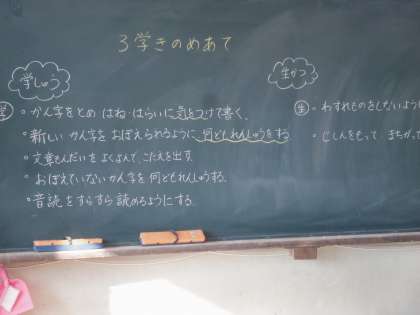 3学きのめあて
学しゅう
生かつ
学 ・かん字をとめ はね・はらいに気をつけて書く。
・新しい かん字を おぼえられるように 何どもれんしゅうをする。
・文章もんだいを よくよんで、こたえを出す。
・おぼえていないかん字を 何どもれんしゅうする。
・音読を すらすら 読めるようにする。
生 ・わすれものをしないよう
・じしんをもって まちが